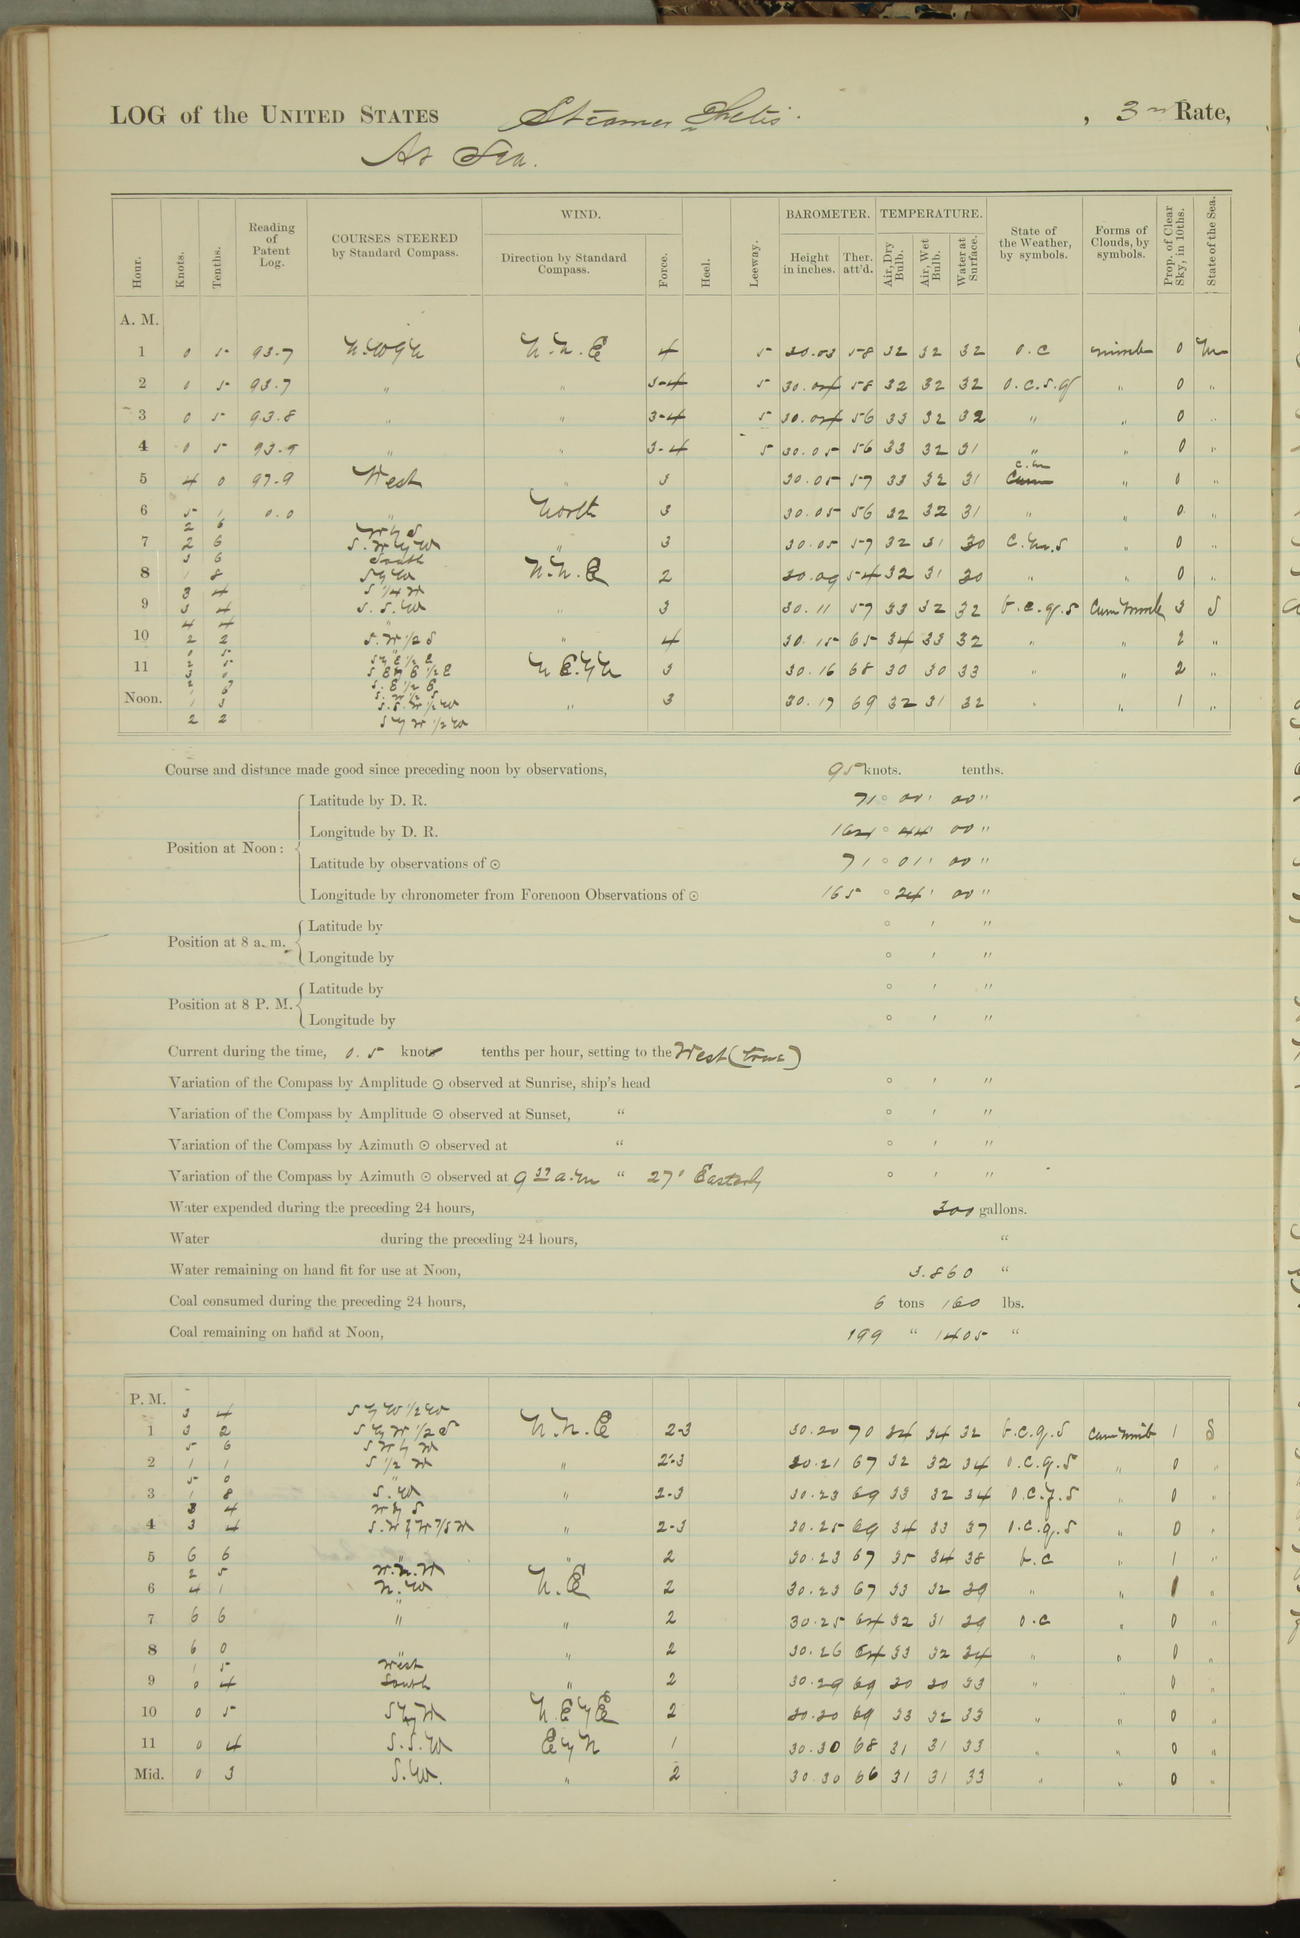 LOG of the UNITED STATES Steamer Thetis. , 3rd Rate,
At Sea.
Hour. Knots. Tenths. Reading of Patent Log. COURSES STEERED by Standard Compass. WIND. Direction by Standard Compass. Force. Heel. Leeway. BAROMETER. Height in inches. Ther. att'd. TEMPERATURE. Air, Dry Bulb. Air, Wet Bulb. Water at Surface. State of the Weather, by symbols. Forms of Clouds, by symbols. Prop. of Clear Sky, in 10ths. State of the Sea.
A. M.
1 0 5 93.7 N.W y N N.N.E 4 5 30.03 58 32 32 32 o.c nimb 0 m
2 0 5 93.7 " " 3-4 5 30.04 58 32 32 32 o.c.s.q " 0 "
3 0 5 93.8 " " 3-4 5 30.04 56 33 32 32 " " 0 "
4 0 5 93.9 " " 3-4 5 30.05 56 33 32 31 " " 0 "
5 4 0 97.9 West " 3 30.05 57 33 32 31 c.m " 0 "
6 5 1 0.0 " North 3 30.05 56 32 32 31 " " 0 "
2 6 W y S
7 2 6 S.W y W " 3 30.05 57 32 31 30 c.m.s " 0 "
3 6 South
8 1 8 S y W N.N.E 2 30.09 54 32 31 30 " " 0 "
3 4 S 1/4 W
9 3 4 S.S.W " 3 30.11 57 33 32 32 b.c.q.s Cum Nimb 3 S
4 4 "
10 2 2 S.W 1/2 S " 4 30.15 65 34 33 32 " " 2 "
0 5 S y E 1/2 E
11 2 5 S E y E 1/2 E N E. y N 3 30.16 68 30 30 33 " " 2 "
3 0 S. E 1/2 E
Noon. 1 3 S.S.W 1/2 W " 3 30.17 69 32 31 32 " " 1 "
2 2 S y W 1/2 W
Course and distance made good since preceding noon by observations, 95 knots. tenths.
Position at Noon:
Latitude by D. R. 71° 00' 00"
Longitude by D. R. 164° 44' 00"
Latitude by observations of ☉ 71° 01' 00"
Longitude by chronometer from Forenoon Observations of ☉ 165° 24' 00"
Position at 8 a. m.
Latitude by ° ' "
Longitude by ° ' "
Position at 8 P. M.
Latitude by ° ' "
Longitude by ° ' "
Current during the time, 0.5 knots tenths per hour, setting to the West (true)
Variation of the Compass by Amplitude ☉ observed at Sunrise, ship's head ° ' "
Variation of the Compass by Amplitude ☉ observed at Sunset, " ° ' "
Variation of the Compass by Azimuth ☉ observed at " ° ' "
Variation of the Compass by Azimuth ☉ observed at 9 37 a.m " 27° Easterly ° ' "
Water expended during the preceding 24 hours, 300 gallons.
Water during the preceding 24 hours, "
Water remaining on hand fit for use at Noon, 3.860 "
Coal consumed during the preceding 24 hours, 6 tons 160 lbs.
Coal remaining on hand at Noon, 199 " 1405 "
P. M.
3 4 S y W 1/2 W
1 3 2 S y W 1/2 S N.N.E 2-3 30.20 70 34 34 32 b.c.q.s Cum Nimb 1 S
5 6 S W y W
2 1 1 S 1/2 W " 2-3 30.21 67 32 32 34 o.c.q.s " 0 "
5 0 "
3 1 8 S.W " 2-3 30.23 69 33 32 34 o.c.q.s " 0 "
3 4 W y S
4 3 4 " 2-3 30.25 69 34 33 37 o.c.q.s " 0 "
5 6 6 " " 2 30.23 67 35 34 38 b.c " 1 "
2 5 W.N.W
6 4 1 N.W N.E 2 30.23 67 33 32 39 " " 1 "
7 6 6 " " 2 30.25 64 32 31 39 o.c " 0 "
8 6 0 " " 2 30.26 64 33 32 34 " " 0 "
1 5 West
9 0 4 South " 2 30.29 69 30 30 33 " " 0 "
10 0 5 S y W N.E y E 2 30.30 69 33 32 33 " " 0 "
11 0 4 S.S.W E y N 1 30.30 68 31 31 33 " " 0 "
Mid. 0 3 S.W. " 2 30.30 66 31 31 33 " " 0 "